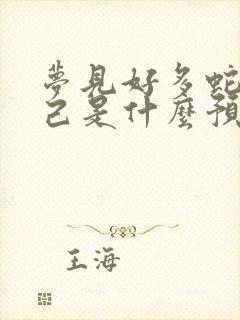 夢見好多蛇
己是什麼預
王海